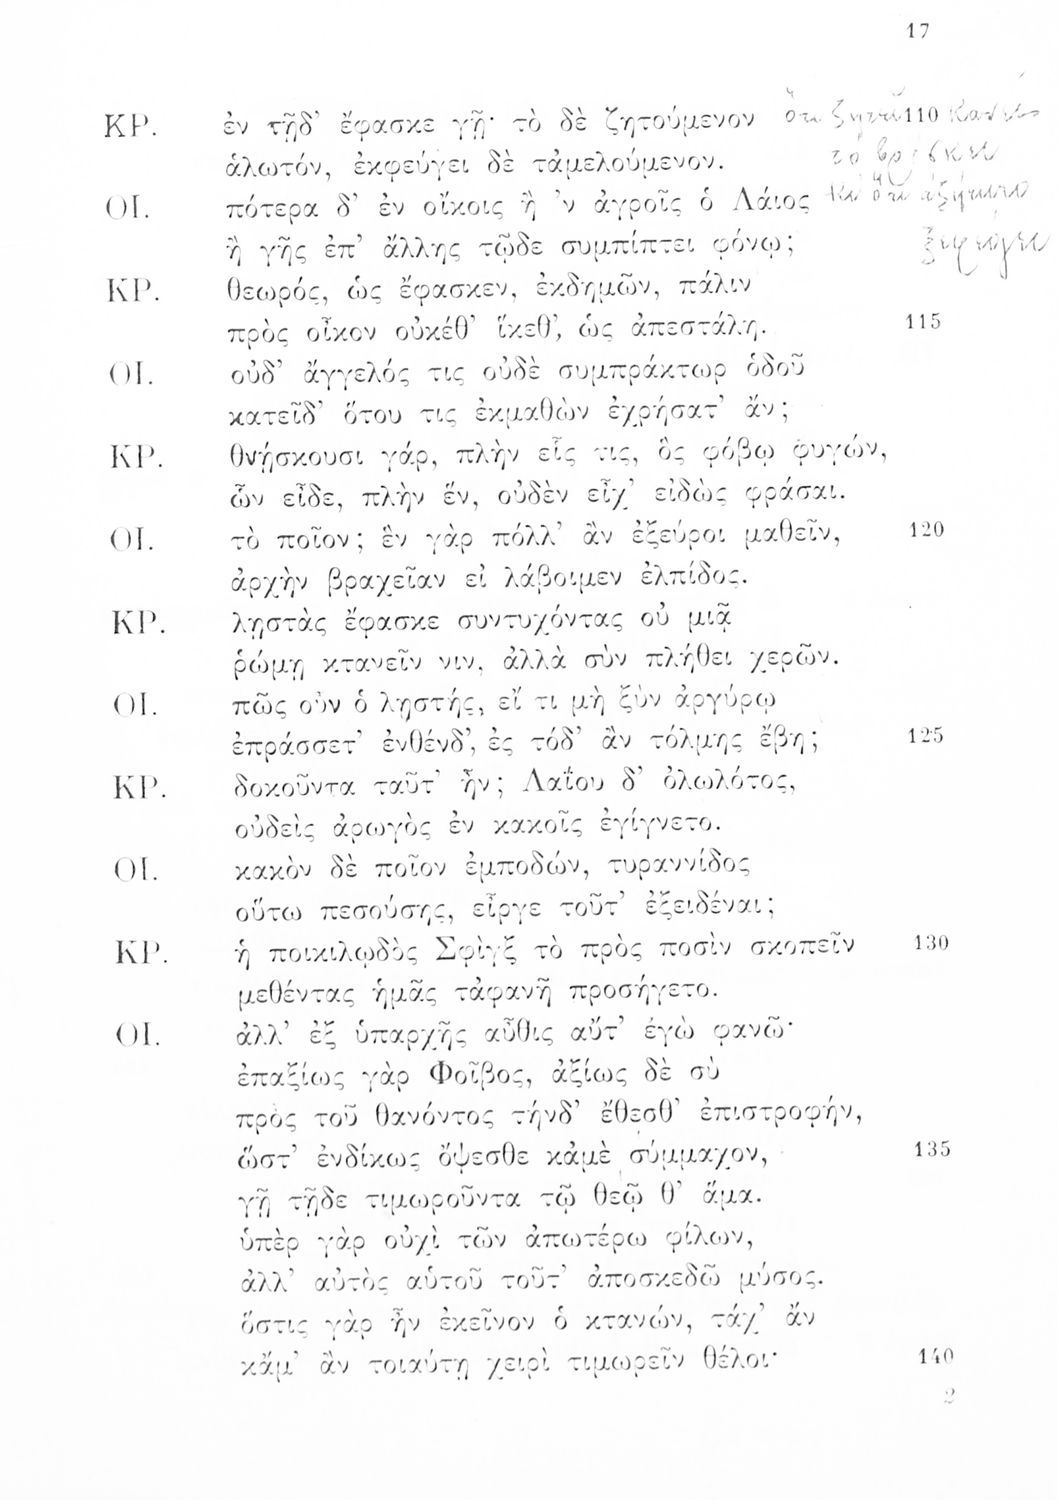 17
ΚΡ. ἐν τῇδ’ ἔφασκε γῇ· τὸ δὲ ζητούμενον ὅτι ζητεῖ 110 κανεὶς
ἁλωτόν, ἐκφεύγει δὲ τἀμελούμενον. τὸ βρίσκει
ΟΙ. πότερα δ’ ἐν οἴκοις ἢ ’ν ἀγροῖς ὁ Λάιος
ἢ γῆς ἐπ’ ἄλλης τῷδε συμπίπτει φόνῳ; ξεφεύγει
ΚΡ. θεωρός, ὡς ἔφασκεν, ἐκδημῶν, πάλιν
πρὸς οἶκον οὐκέθ’ ἵκεθ’, ὡς ἀπεστάλη. 115
ΟΙ. οὐδ’ ἄγγελός τις οὐδὲ συμπράκτωρ ὁδοῦ
κατεῖδ’ ὅτου τις ἐκμαθὼν ἐχρήσατ’ ἄν;
ΚΡ. θνήσκουσι γάρ, πλὴν εἷς τις, ὃς φόβῳ φυγών,
ὧν εἶδε, πλὴν ἕν, οὐδὲν εἶχ’ εἰδὼς φράσαι.
ΟΙ. τὸ ποῖον; ἓν γὰρ πόλλ’ ἂν ἐξεύροι μαθεῖν, 120
ἀρχὴν βραχεῖαν εἰ λάβοιμεν ἐλπίδος.
ΚΡ. λῃστὰς ἔφασκε συντυχόντας οὐ μιᾷ
ῥώμῃ κτανεῖν νιν, ἀλλὰ σὺν πλήθει χερῶν.
ΟΙ. πῶς οὖν ὁ λῃστής, εἴ τι μὴ ξὺν ἀργύρῳ
ἐπράσσετ’ ἐνθένδ’, ἐς τόδ’ ἂν τόλμης ἔβη; 125
ΚΡ. δοκοῦντα ταῦτ’ ἦν; Λαΐου δ’ ὀλωλότος,
οὐδεὶς ἀρωγὸς ἐν κακοῖς ἐγίγνετο.
ΟΙ. κακὸν δὲ ποῖον ἐμποδών, τυραννίδος
οὕτω πεσούσης, εἶργε τοῦτ’ ἐξειδέναι;
ΚΡ. ἡ ποικιλῳδὸς Σφὶγξ τὸ πρὸς ποσὶν σκοπεῖν 130
μεθέντας ἡμᾶς τἀφανῆ προσήγετο.
ΟΙ. ἀλλ’ ἐξ ὑπαρχῆς αὖθις αὔτ’ ἐγὼ φανῶ·
ἐπαξίως γὰρ Φοῖβος, ἀξίως δὲ σὺ
πρὸς τοῦ θανόντος τήνδ’ ἔθεσθ’ ἐπιστροφήν,
ὥστ’ ἐνδίκως ὄψεσθε κἀμὲ σύμμαχον, 135
γῇ τῇδε τιμωροῦντα τῷ θεῷ θ’ ἅμα.
ὑπὲρ γὰρ οὐχὶ τῶν ἀπωτέρω φίλων,
ἀλλ’ αὐτὸς αὑτοῦ τοῦτ’ ἀποσκεδῶ μύσος.
ὅστις γὰρ ἦν ἐκεῖνον ὁ κτανών, τάχ’ ἂν
κἄμ’ ἂν τοιαύτῃ χειρὶ τιμωρεῖν θέλοι· 140
2